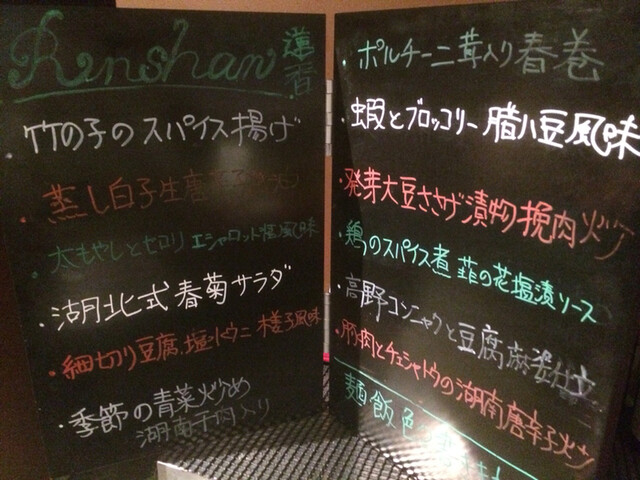 Renshan 蓮香
・竹の子のスパイス揚げ
・蒸し白子生唐辛子
・太もやしとセロリ エシャロット醤風味
・湖北式春菊サラダ
・細切り豆腐、塩トウニ 椎子風味
・季節の青菜炒め
湖南干肉入り
・ポルチーニ茸入り春巻
・蝦とブロッコリー 腊八豆風味
・発芽大豆ささげ漬物挽肉炒ゲ
・鶏のスパイス煮 韮の花塩漬ソース
・高野コンニャクと豆腐麻婆仕立
・豚肉とチェシャトウの湖南唐辛子炒ゲ
麺飯色々